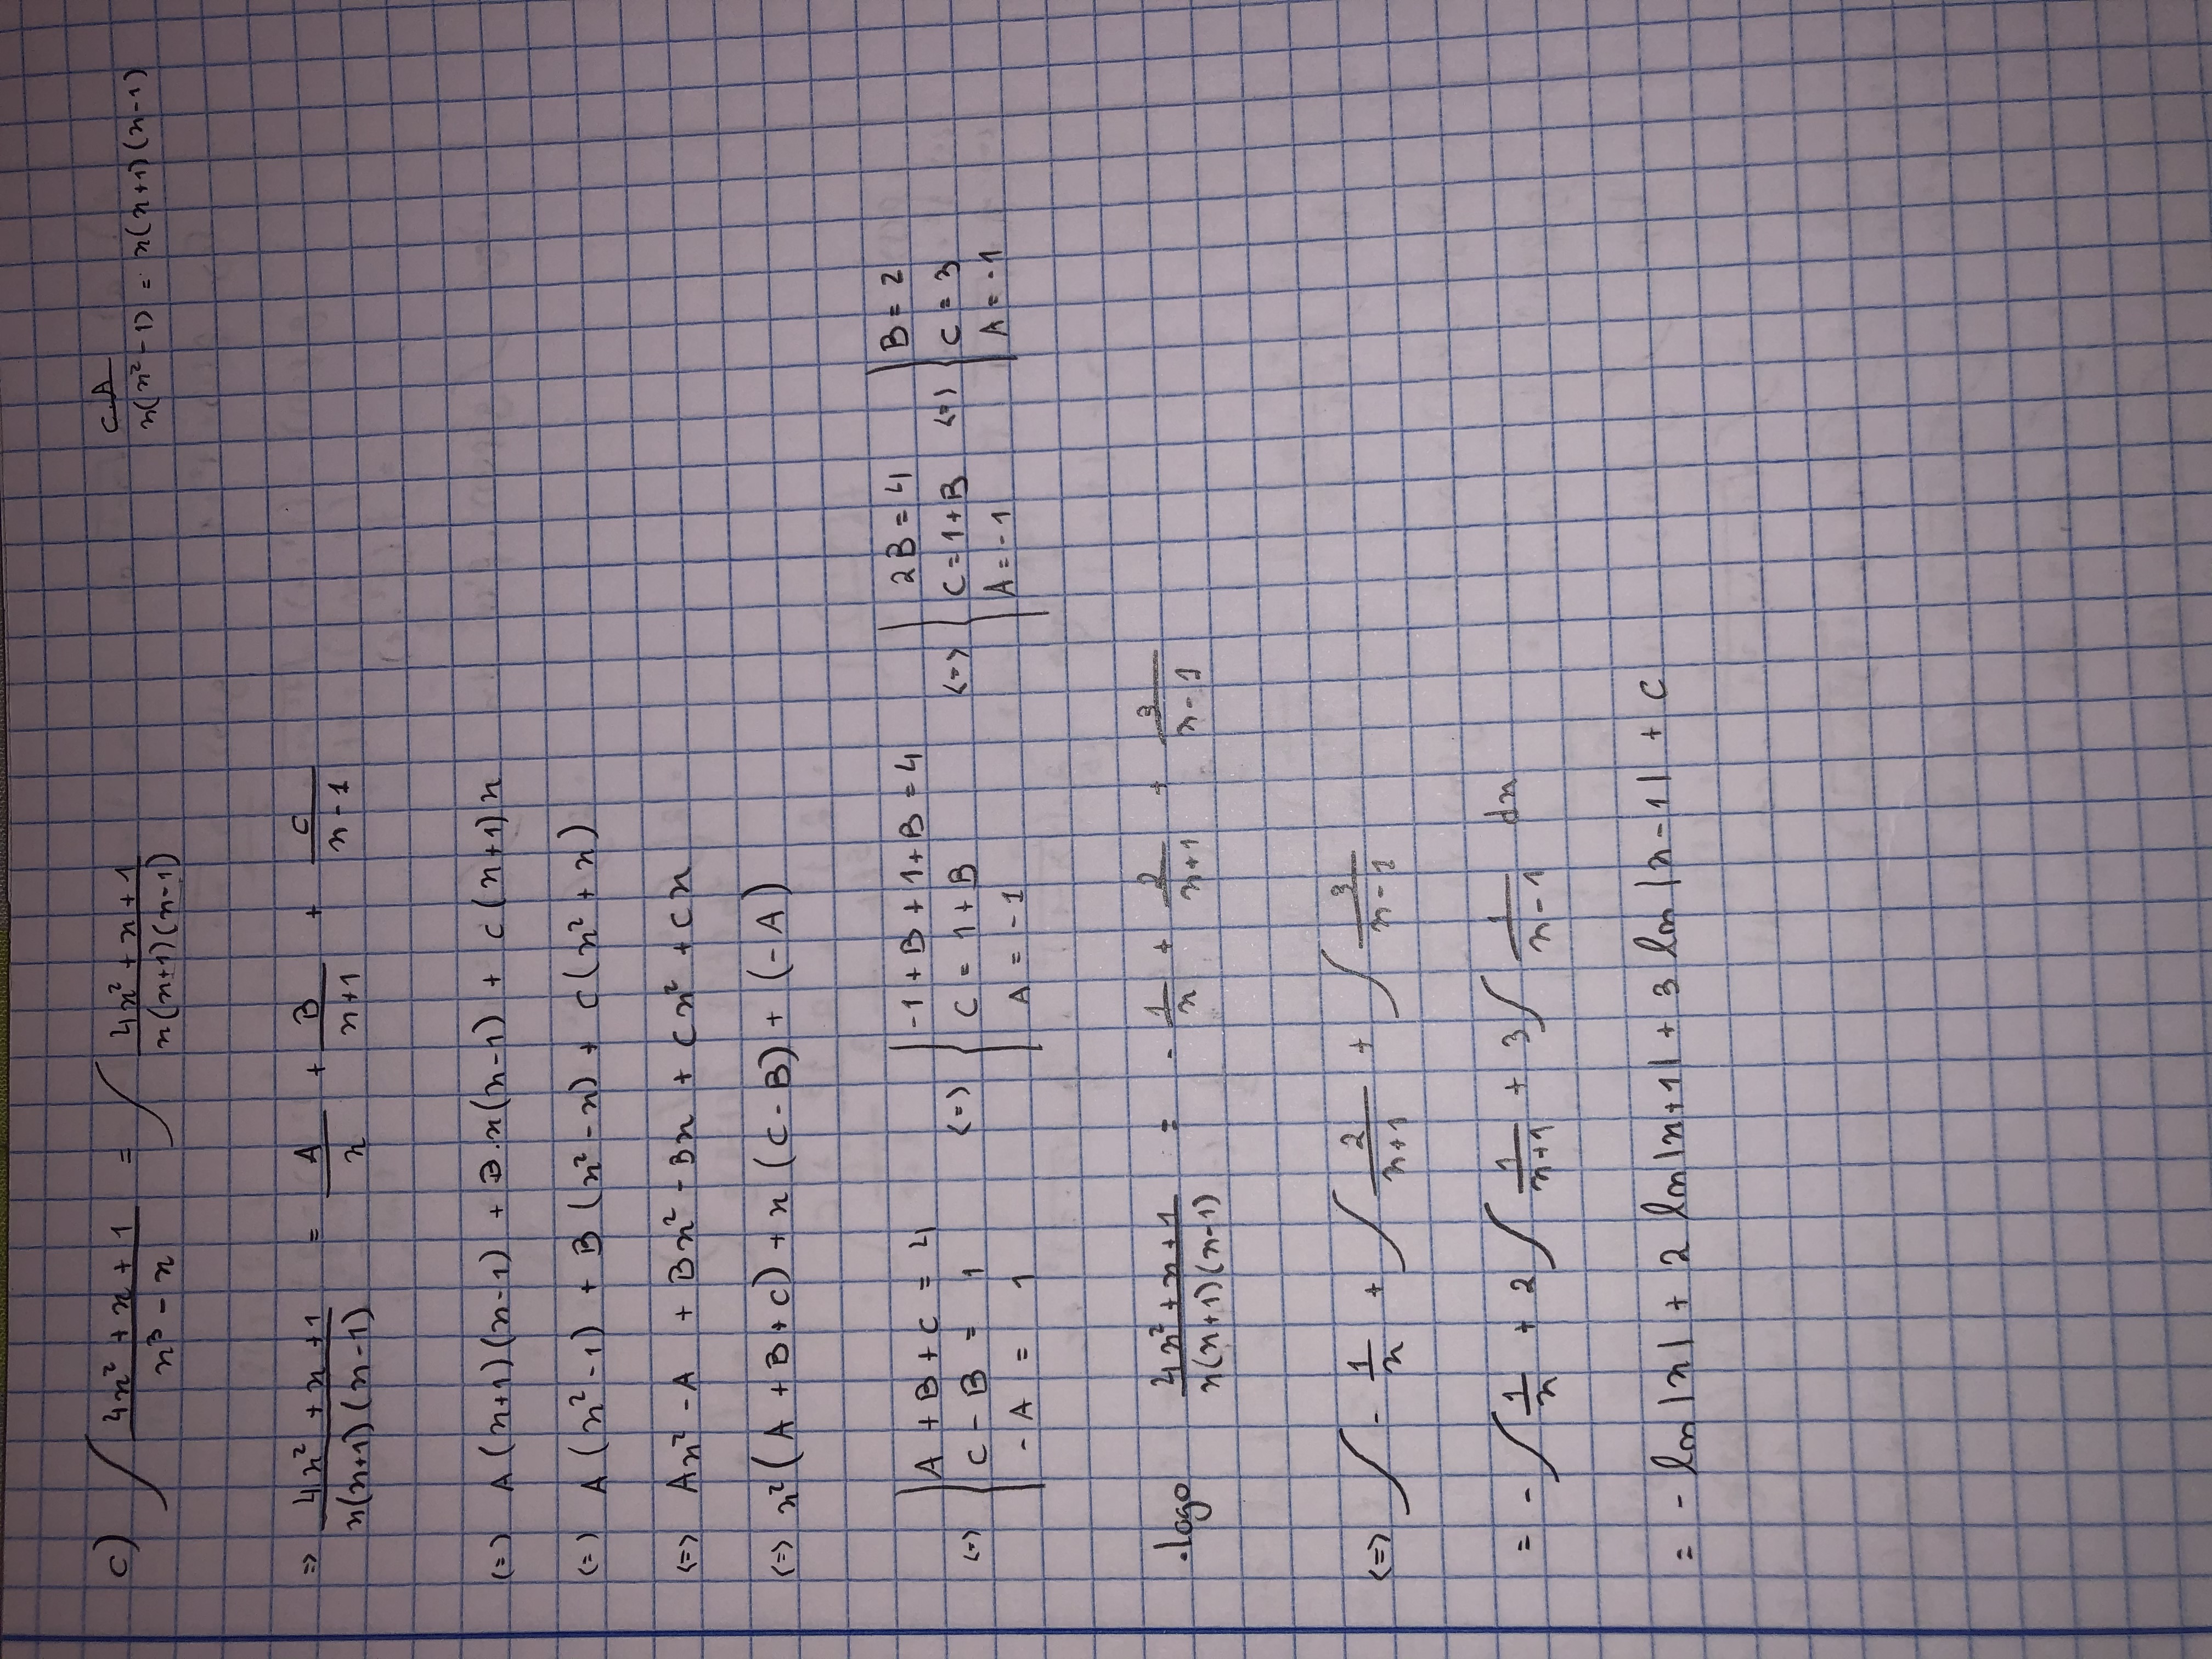 c) ∫ (4x² + x + 1)/(x³ - x) = ∫ (4x² + x + 1)/(x(x+1)(x-1))
C.A
x(x² - 1) = x(x+1)(x-1)
=> (4x² + x + 1)/(x(x+1)(x-1)) = A/x + B/(x+1) + C/(x-1)
(=) A(x+1)(x-1) + B.x(x-1) + C(x+1)x
(=) A(x² - 1) + B(x² - x) + C(x² + x)
<=> Ax² - A + Bx² - Bx + Cx² + Cx
<=> x²(A + B + C) + x(C - B) + (-A)
<=> | A + B + C = 4 <=> | -1 + B + 1 + B = 4 <=> | 2B = 4 <=> | B = 2
| C - B = 1 | C = 1 + B | C = 1 + B | C = 3
| -A = 1 | A = -1 | A = -1 | A = -1
.logo (4x² + x + 1)/(x(x+1)(x-1)) = - 1/x + 2/(x+1) + 3/(x-1)
<=> ∫ - 1/x + ∫ 2/(x+1) + ∫ 3/(x-1)
= - ∫ 1/x + 2 ∫ 1/(x+1) + 3 ∫ 1/(x-1) dx
= - ln|x| + 2 ln|x+1| + 3 ln|x-1| + C